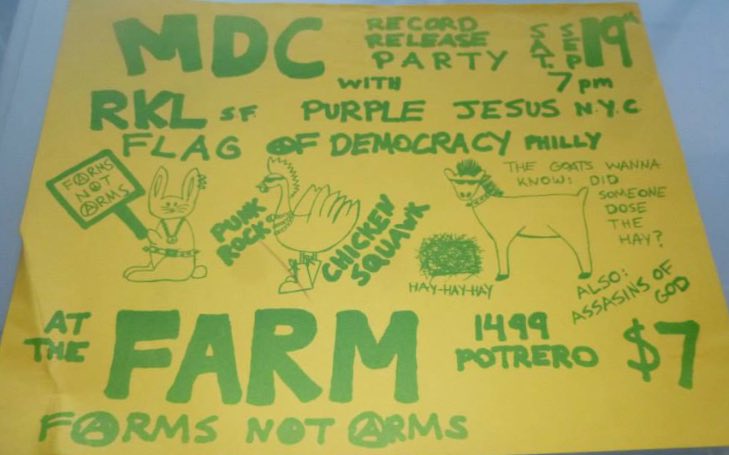 MDC
RECORD
RELEASE
PARTY
SAT. SEP 19th
7 pm
WITH
RKL SF. PURPLE JESUS N.Y.C
FLAG OF DEMOCRACY PHILLY
FARMS
NOT
ARMS
PUNK
ROCK
CHICKEN
SQUAWK
THE GOATS WANNA
KNOW: DID
SOMEONE
DOSE
THE
HAY?
HAY-HAY-HAY
ALSO:
ASSASINS OF
GOD
AT
THE
FARM
1499
POTRERO
$7
FARMS NOT ARMS